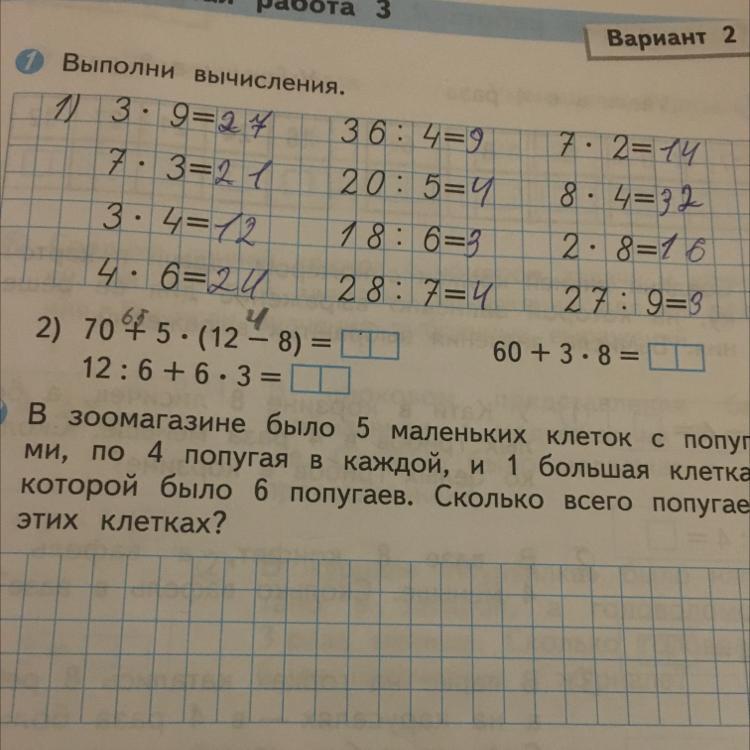 работа 3
Вариант 2
1 Выполни вычисления.
1) 3 · 9=27 36 : 4=9 7 · 2=14
7 · 3=21 20 : 5=4 8 · 4=32
3 · 4=12 18 : 6=3 2 · 8=16
4 · 6=24 28 : 7=4 27 : 9=3
4
2) 70 + 5 · (12 – 8) = 60 + 3 · 8 =
12 : 6 + 6 · 3 =
В зоомагазине было 5 маленьких клеток с попуг
ми, по 4 попугая в каждой, и 1 большая клетка
которой было 6 попугаев. Сколько всего попугае
этих клетках?